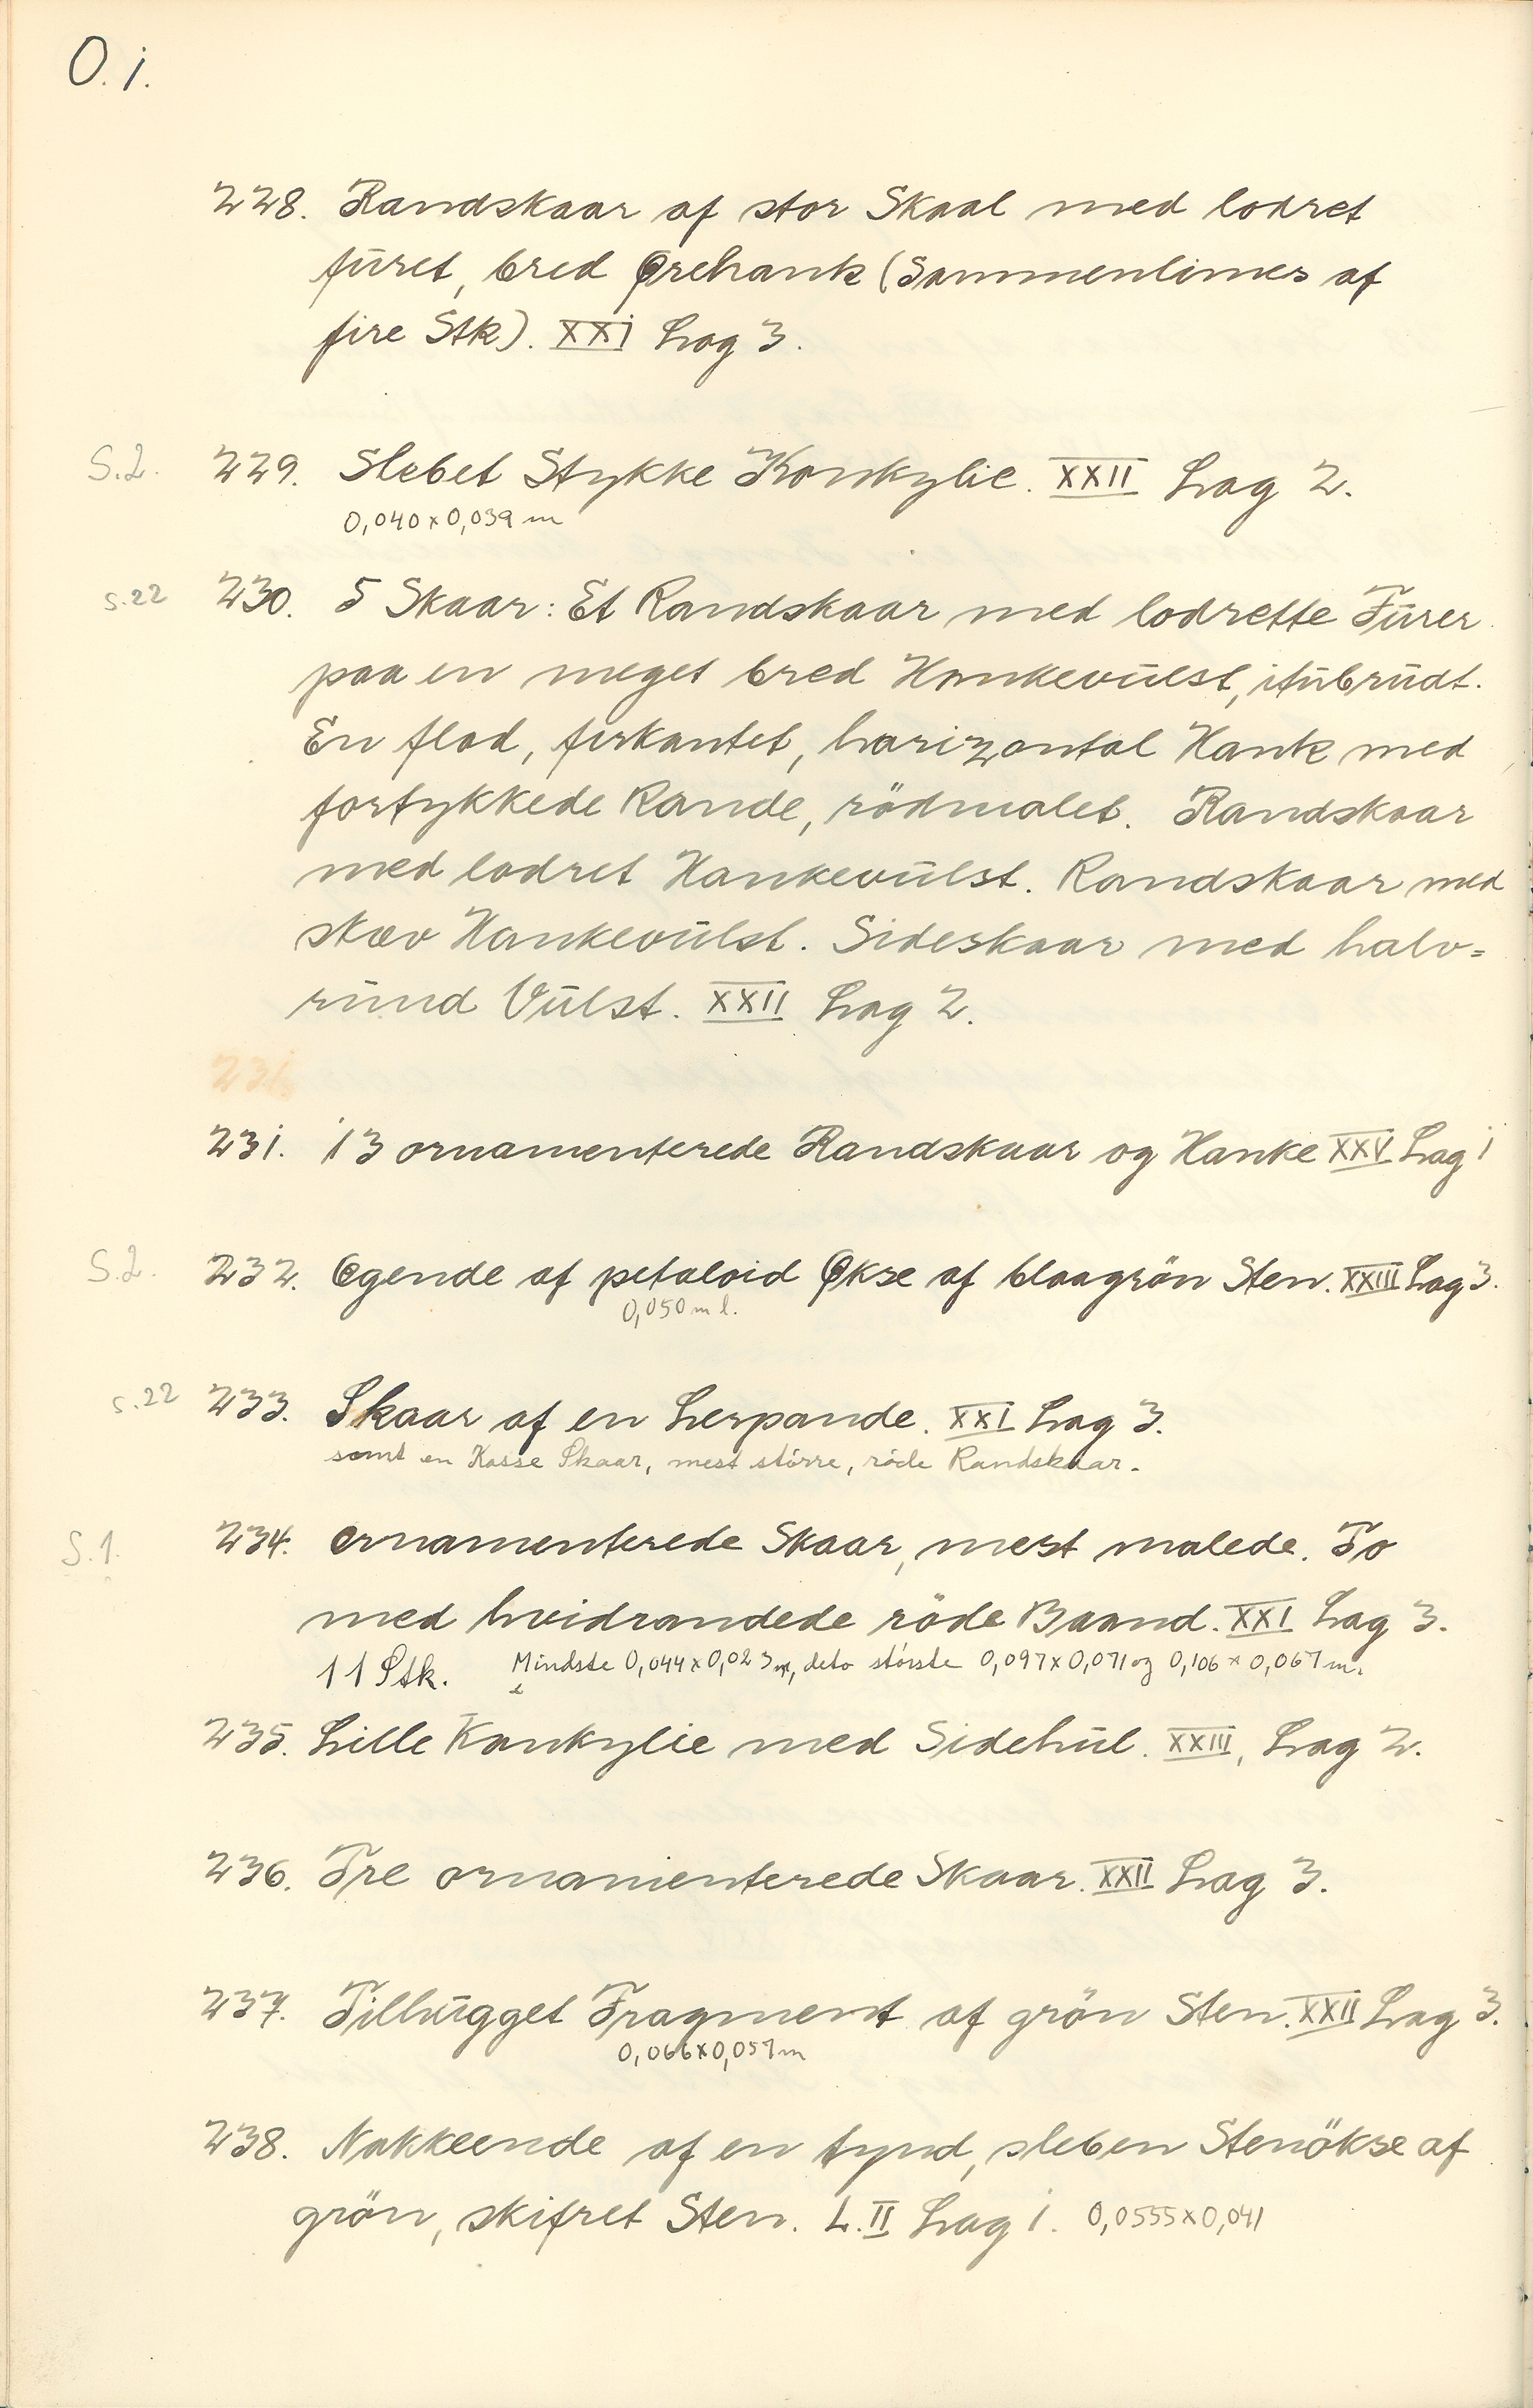 O.1.
228. Randskaar af stor Skaal med lodret
furet, bred Ørehank (Sammenlimes af
fire Stk). XXI Lag 3.
S.2. 229. Slebet Stykke Konkylie. XXII Lag 2.
0,040 x 0,039 m
s.22 230. 5 Skaar: Et Randskaar med lodrette Furer
paa en meget bred Hankevulst, itubrudt.
En flad, firkantet, horizontal Hank med
fortykkede Rande, rödmalet. Randskaar
med lodret Hankevulst. Randskaar med
skæv Hankevulst. Sideskaar med halv=
rund Vulst. XXII Lag 2.
231.
231. 13 ornamenterede Randskaar og Hanke XXV Lag 1
S.2. 232. Egende af petaloid Økse af blaagrön Sten. XXIII Lag 3.
0,050 m l.
s.22 233. Skaar af en Lerpande. XXI Lag 3.
samt en Kasse Skaar, mest större, röde Randskaar.
S.1. 234. Ornamenterede Skaar, mest malede. To
med hvidrandede röde Baand. XXI Lag 3.
11 Stk. Mindste 0,044 x 0,023 m, deto störste 0,097 x 0,071 og 0,106 x 0,067 m.
235. Lille Konkylie med Sidehul. XXIII, Lag 2.
236. Tre ornamenterede Skaar. XXII Lag 3.
237. Tilhugget Fragment af grön Sten. XXII Lag 3.
0,066 x 0,057 m
238. Nakkeende af en tynd, sleben Stenökse af
grön, skifret Sten. L. II Lag 1. 0,0555 x 0,041